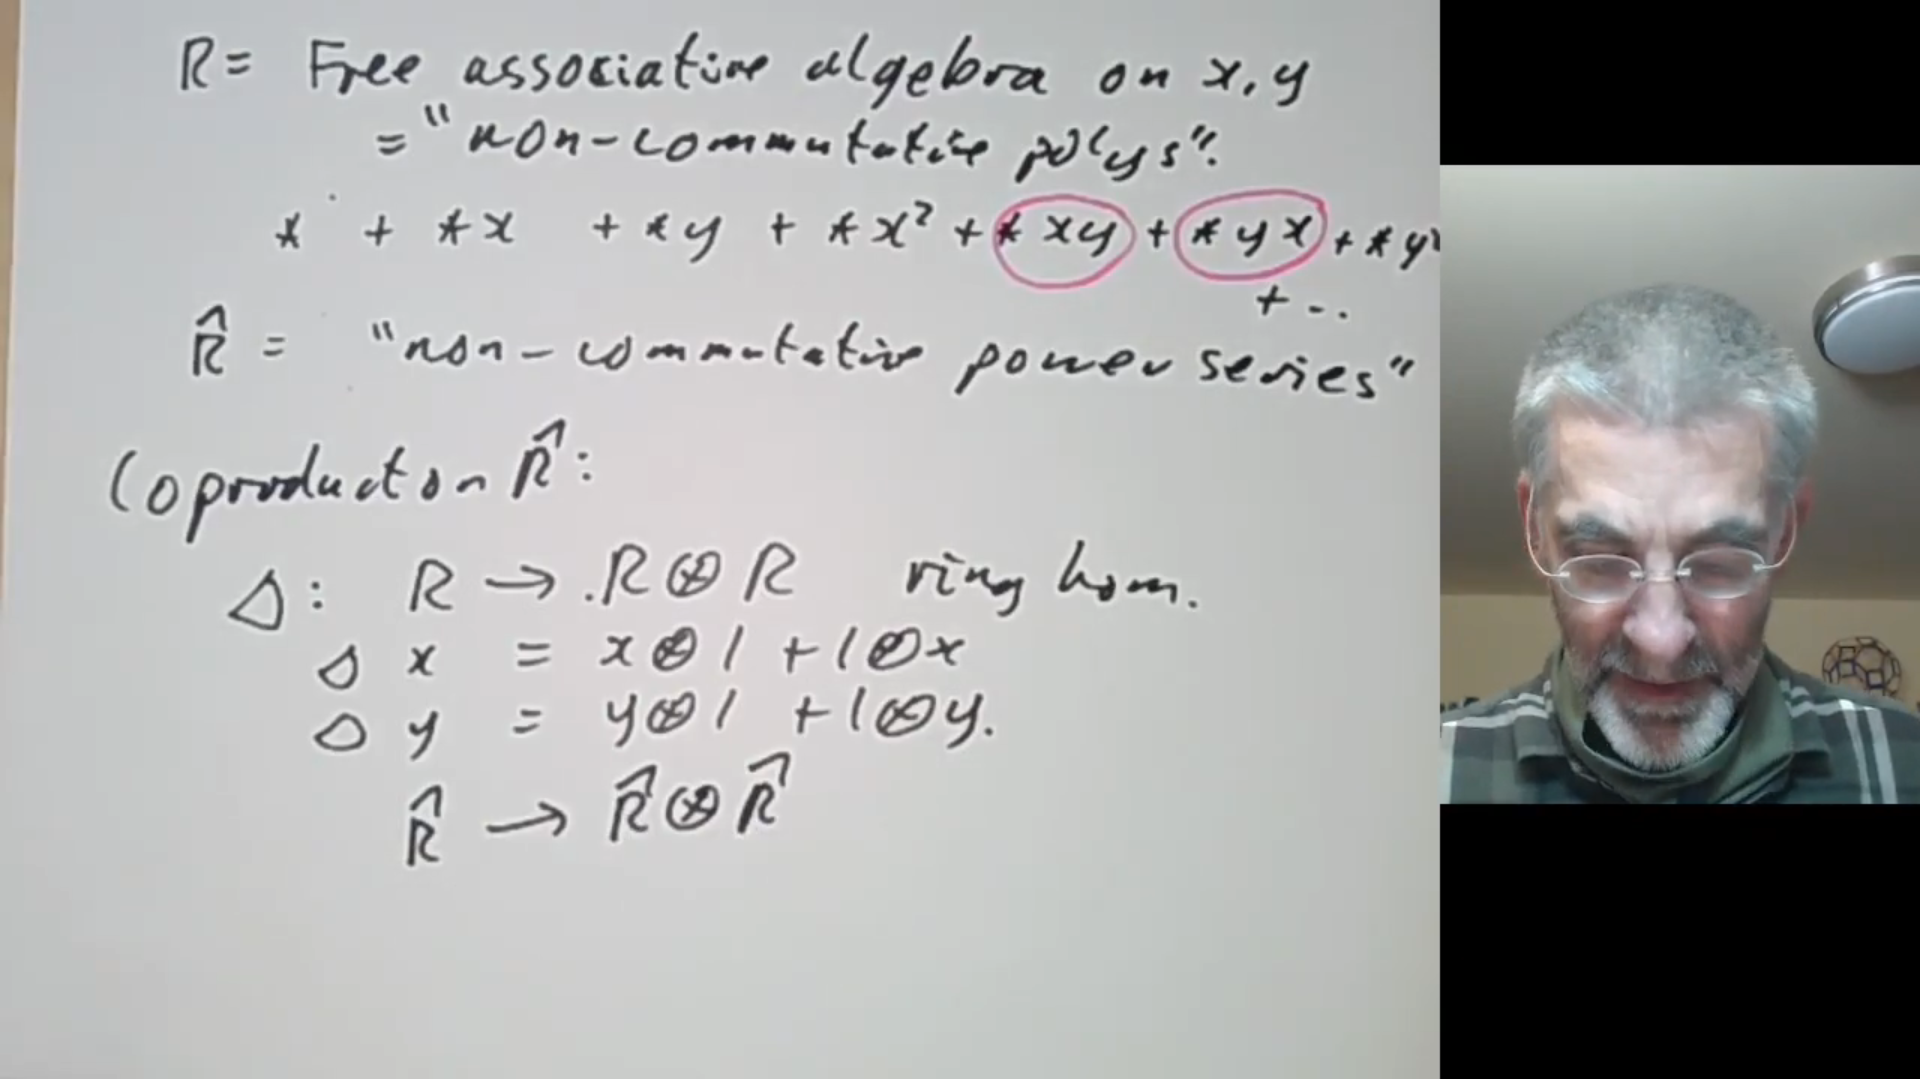 R = Free associative algebra on x, y
= "non-commutative polys".
* + *x + *y + *x² + *xy + *yx + *y²
+ ...
R̂ = "non-commutative power series"
Coproduct on R̂:
Δ: R → R⊗R ring hom.
Δ x = x⊗1 + 1⊗x
Δ y = y⊗1 + 1⊗y.
R̂ → R̂⊗R̂